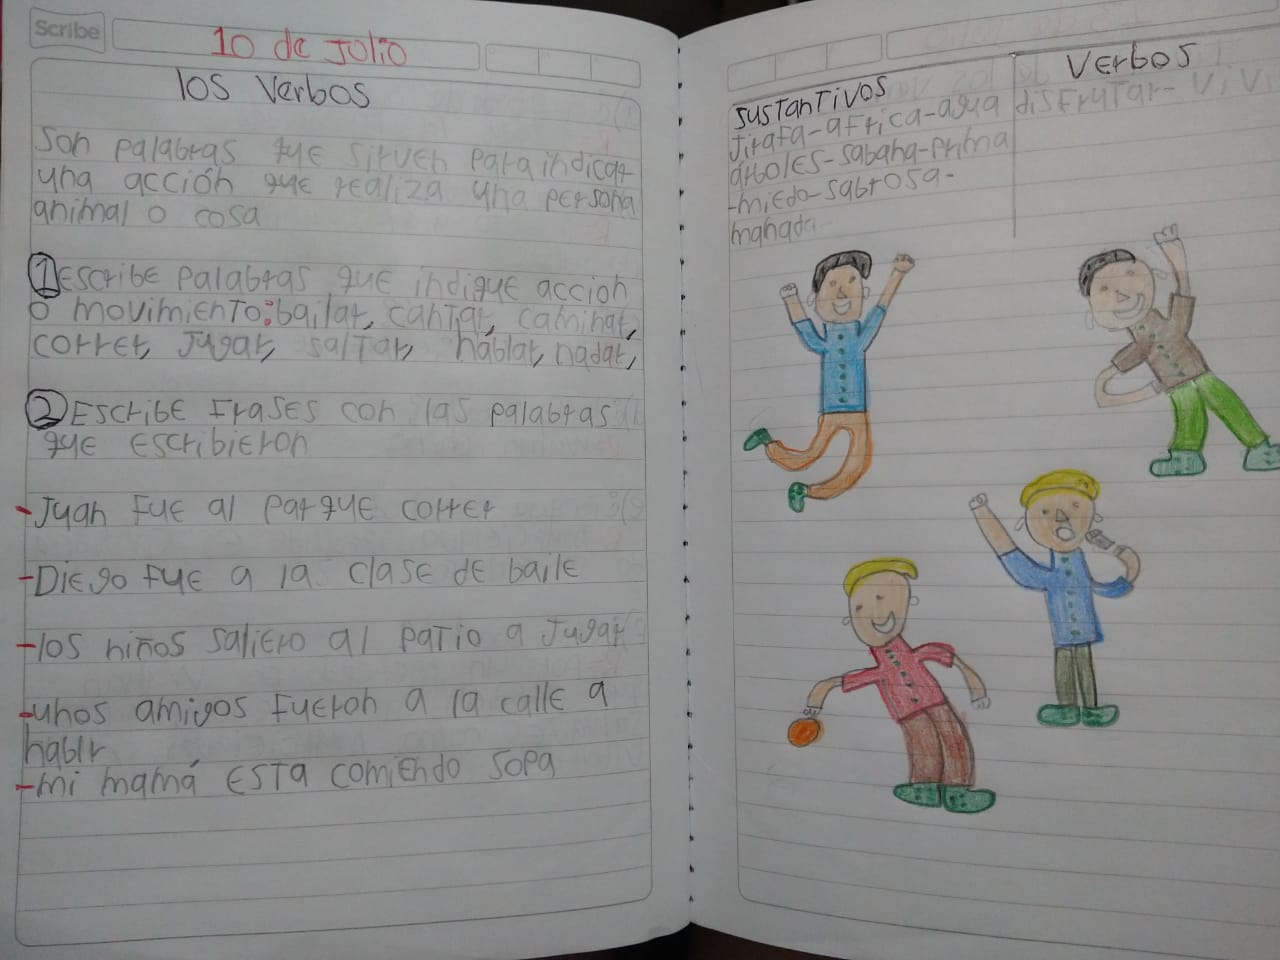 Scribe
10 de Julio
los Verbos
Son palabras que sirven para indicar
una acción que realiza una persona
animal o cosa
1 Escribe palabras que indique accion
o movimiento: bailar, cantar, caminar,
correr, Jugar, saltar, hablar, nadar,
2 Escribe Frases con las palabras
que escribieron
- Juan Fue al parque correr
- Diego fue a la clase de baile
- los niños saliero al patio a Jugar
- unos amigos fueron a la calle a
hablr
- mi mamá Esta comiendo sopa
sustantivos
Jirafa - africa - agua
arboles - sabana - prima
- miedo - sabrosa -
manada
Verbos
disfrutar - vivi